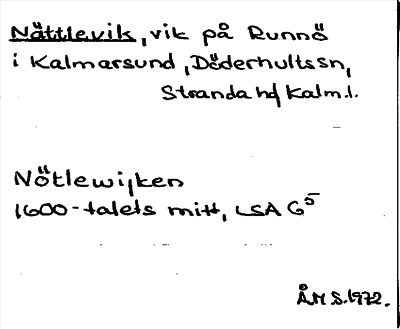 Nättlevik, vik på Runnö
i Kalmarsund, Döderhultssn,
Stranda hd Kalm.l.
Nötlewijken
1600-talets mitt, LSA G5
ÅMS.1972.